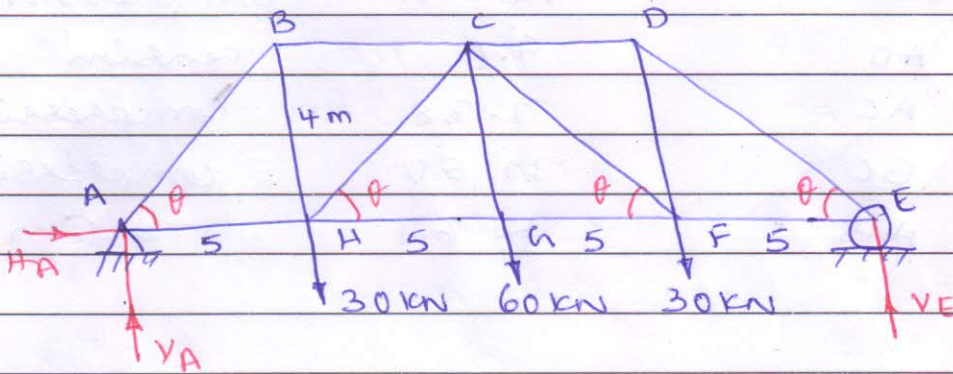 B C D
4 m
A θ θ θ θ E
HA 5 H 5 G 5 F 5
30 KN 60 KN 30 KN VE
VA